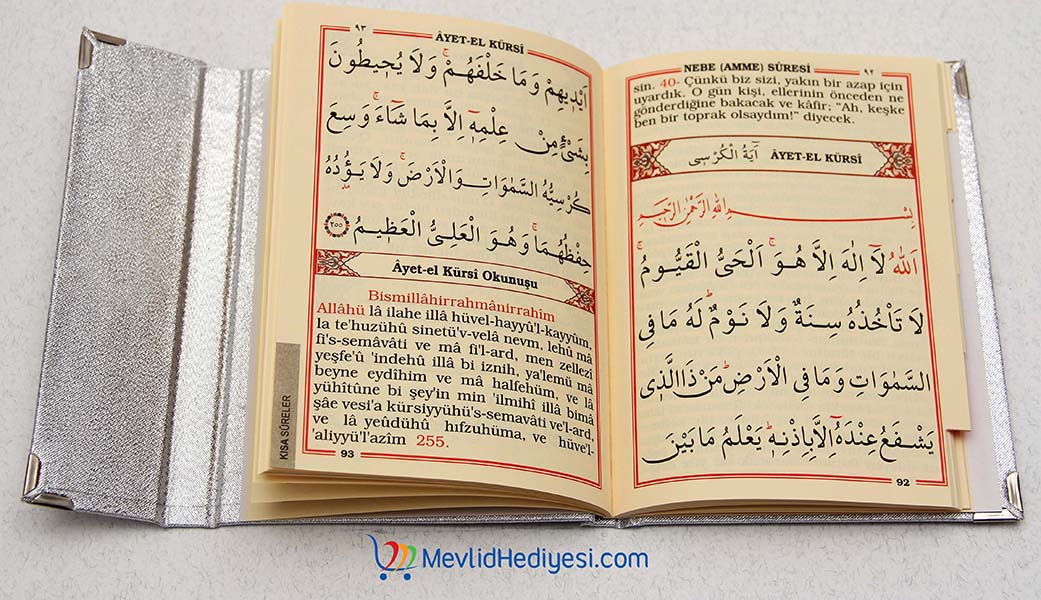 NEBE (AMME) SÛRESİ
٩٢
sin. 40- Çünkü biz sizi, yakın bir azap için
uyardık. O gün kişi, ellerinin önceden ne
gönderdiğine bakacak ve kâfir; "Ah, keşke
ben bir toprak olsaydım!" diyecek.
اٰيَةُ الْكُرْسِى ÂYET-EL KÜRSÎ
بِسْمِ اللهِ الرَّحْمٰنِ الرَّحِيمِ
اَللّٰهُ لَٓا اِلٰهَ اِلَّا هُوَۚ اَلْحَيُّ الْقَيُّومُۚ
لَا تَأْخُذُهُ سِنَةٌ وَلَا نَوْمٌۜ لَهُ مَا فِي
السَّمٰوَاتِ وَمَا فِي الْاَرْضِۜ مَنْ ذَا الَّذِي
يَشْفَعُ عِنْدَهُٓ اِلَّا بِاِذْنِهٖۜ يَعْلَمُ مَا بَيْنَ
92
٩٣
ÂYET-EL KÜRSÎ
اَيْدٖيهِمْ وَمَا خَلْفَهُمْۚ وَلَا يُحٖيطُونَ
بِشَيْءٍ مِنْ عِلْمِهٖٓ اِلَّا بِمَا شَٓاءَۚ وَسِعَ
كُرْسِيُّهُ السَّمٰوَاتِ وَالْاَرْضَۚ وَلَا يَؤُ۫دُهُ
حِفْظُهُمَاۚ وَهُوَ الْعَلِيُّ الْعَظٖيمُ ٢٥٥
Âyet-el Kürsî Okunuşu
Bismillâhirrahmânirrahîm
Allâhü lâ ilahe illâ hüvel-hayyû'l-kayyûm,
la te'huzühû sinetü'v-velâ nevm, lehû mâ
fi's-semâvâti ve mâ fi'l-ard, men zellezî
yeşfe'û 'indehû illâ bi iznih, ya'lemü mâ
beyne eydîhim ve mâ halfehüm, ve lâ
yühîtûne bi şey'in min 'ilmihî illâ bimâ
şâe vesi'a kürsiyyühü's-semavâti ve'l-ard,
ve lâ yeûdühû hıfzuhüma, ve hüve'l-
'aliyyü'l'azîm 255.
KISA SÛRELER
93
MevlidHediyesi.com